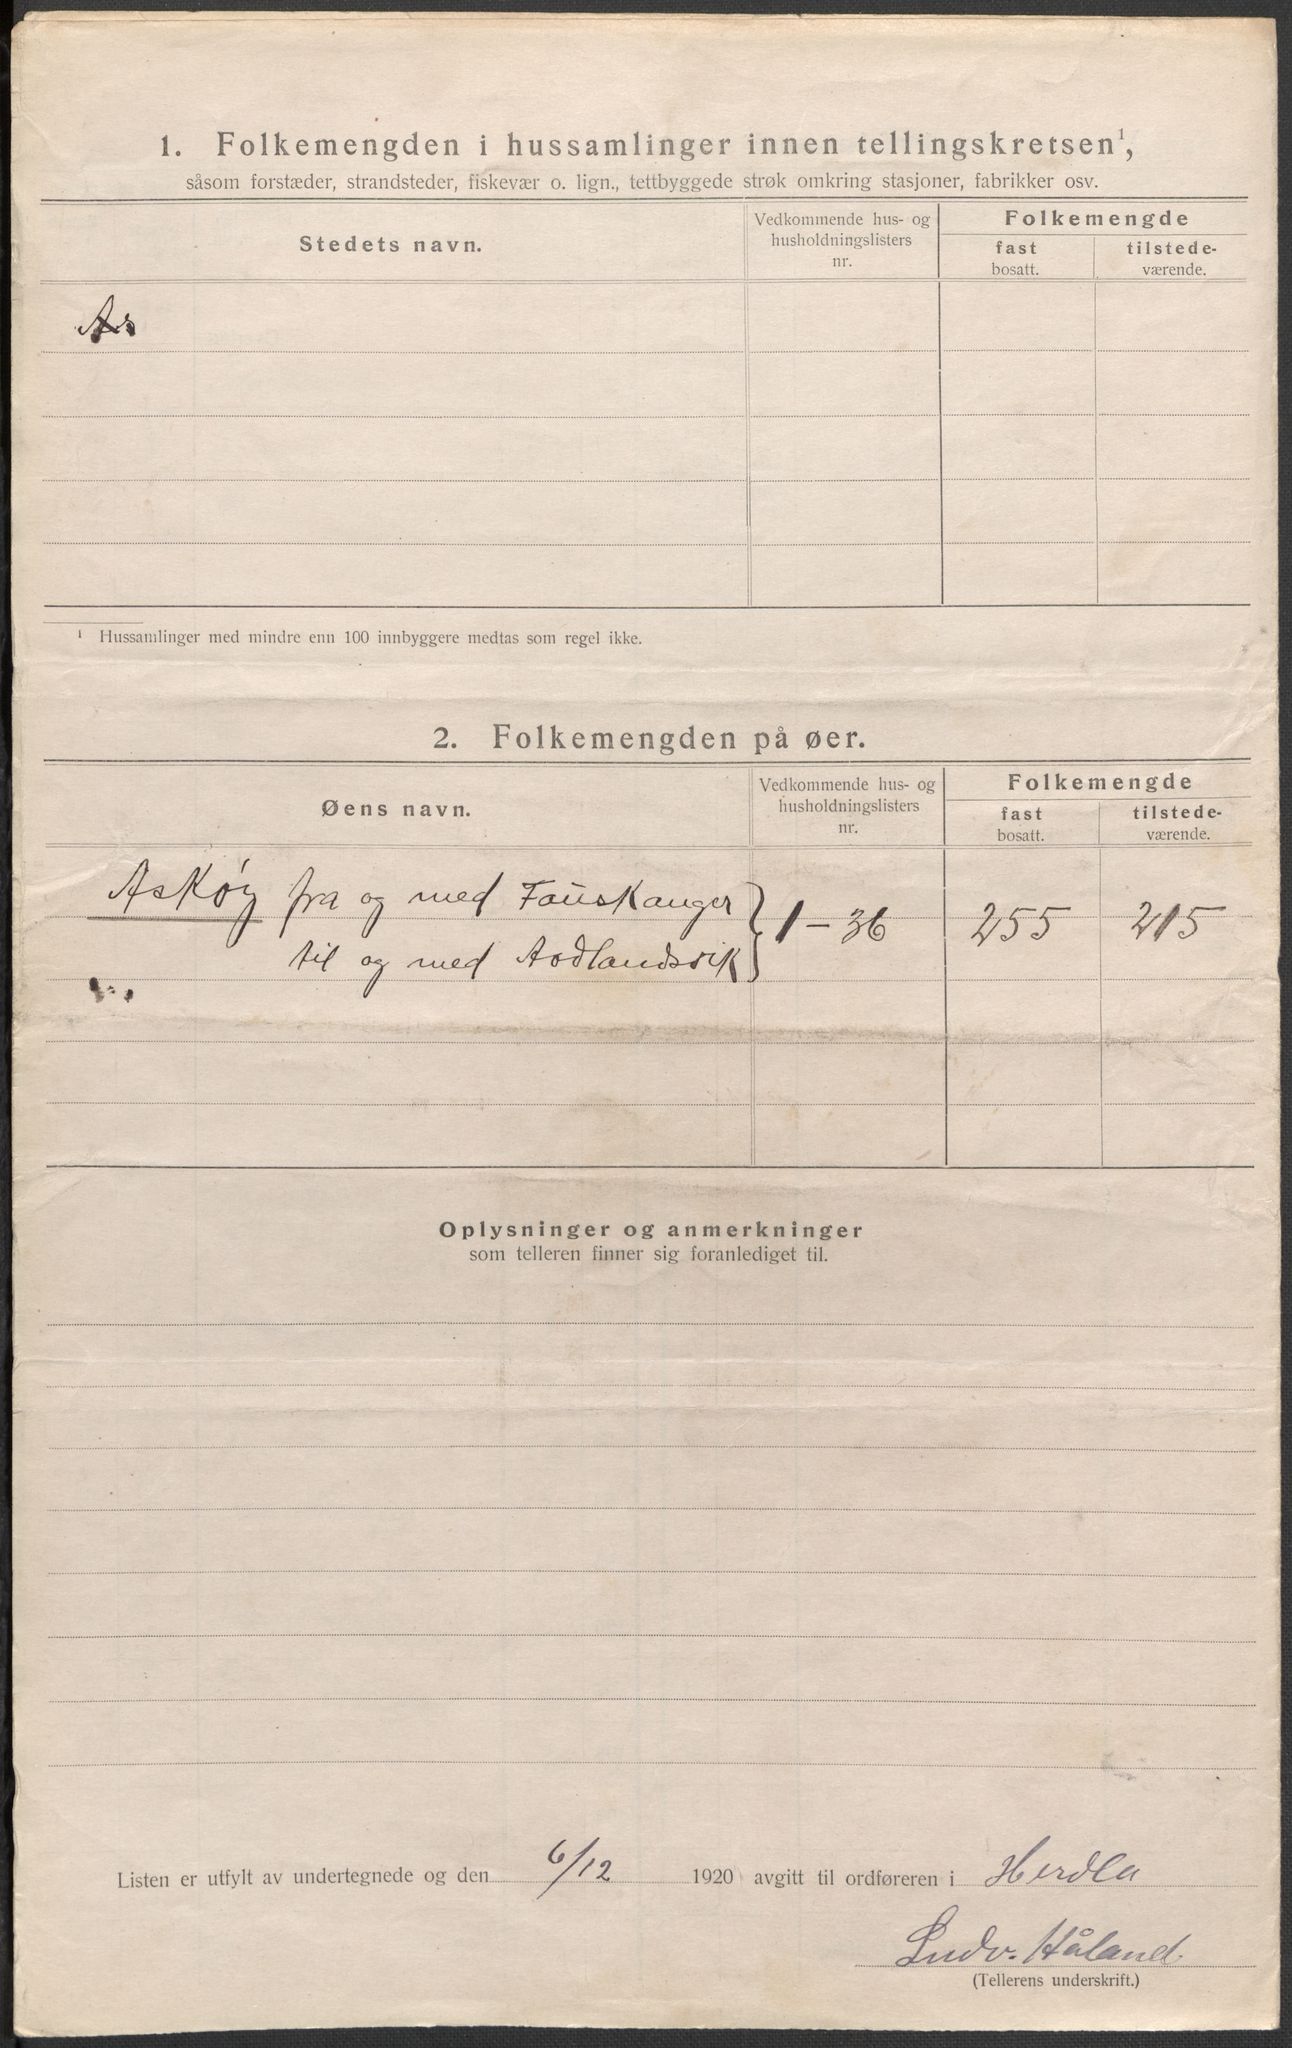 1. Folkemengden i hussamlinger innen tellingskretsen¹,
såsom forstæder, strandsteder, fiskevær o. lign., tettbyggede strøk omkring stasjoner, fabrikker osv.
Stedets navn.
Vedkommende hus- og husholdningslisters nr.
Folkemengde
fast bosatt.
tilstede-værende.
As
¹ Hussamlinger med mindre enn 100 innbyggere medtas som regel ikke.
2. Folkemengden på øer.
Øens navn.
Vedkommende hus- og husholdningslisters nr.
Folkemengde
fast bosatt.
tilstede-værende.
Askøy fra og med Fauskanger } 1-36 255 215
til og med Aodlandsvik
Oplysninger og anmerkninger
som telleren finner sig foranlediget til.
Listen er utfylt av undertegnede og den 6/12 1920 avgitt til ordføreren i Herdla
Ludv. Håland
(Tellerens underskrift.)